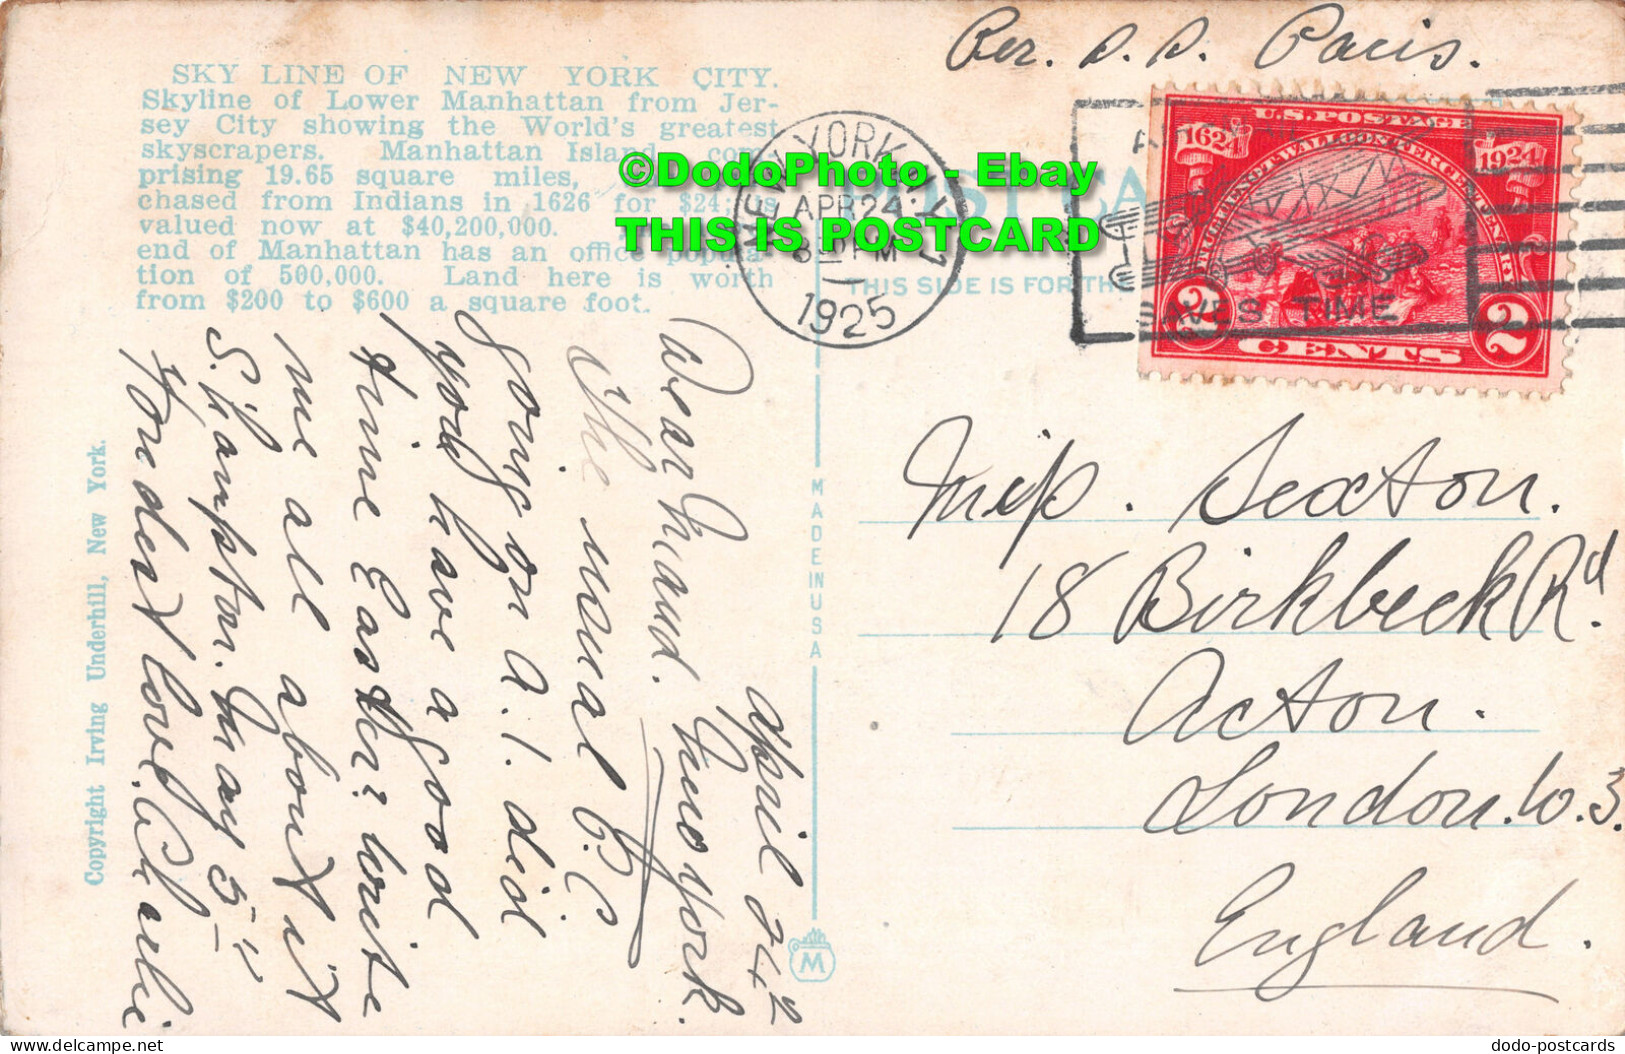 Per. S. S. Paris.
SKY LINE OF NEW YORK CITY.
Skyline of Lower Manhattan from Jer-
sey City showing the World's greatest
skyscrapers. Manhattan Island, com-
prising 19.65 square miles,
chased from Indians in 1626 for $24; is
valued now at $40,200,000.
end of Manhattan has an office popula-
tion of 500,000. Land here is worth
from $200 to $600 a square foot.
©DodoPhoto - Ebay
THIS IS POSTCARD
NEW YORK, N.Y.
APR 24
8 PM
1925
POST CARD
THIS SIDE IS FOR THE
AIR MAIL
SAVES TIME
U.S. POSTAGE
1624 1924
HUGUENOT-WALLOON TERCENTENARY
2 CENTS 2
April 24th
New York.
Dear Maud.
The usual P.C
going on A.1. did
you have a good
time Easter? write
me all about it
S.Hampton. May 5th
Fondest love. Charlie
Copyright Irving Underhill, New York.
MADE IN USA
M
Miss. Sexton.
18 Birkbeck Rd.
Acton.
London. W. 3.
England.
dodo-postcards